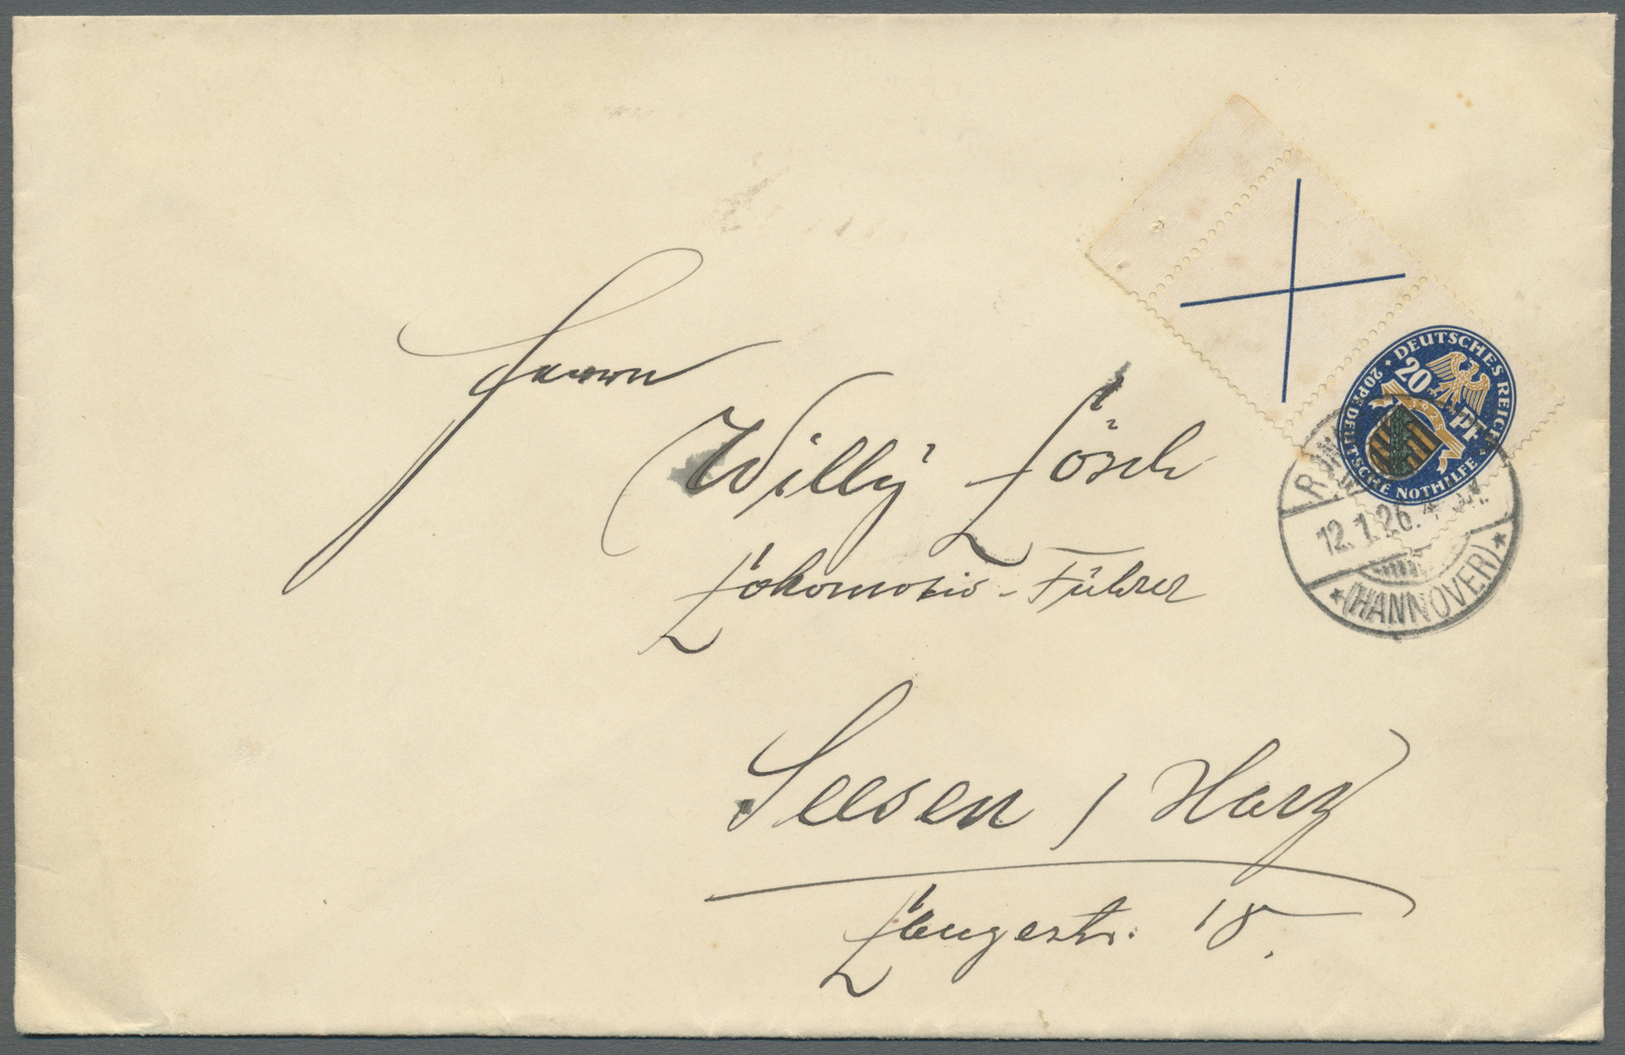 Herrn
Willy Lösch
Lokomotiv-Führer
Seesen / Harz
Langestr. 18.
DEUTSCHES REICH
20 PF
20 PF DEUTSCHE NOTHILFE
12.1.26.
(HANNOVER)